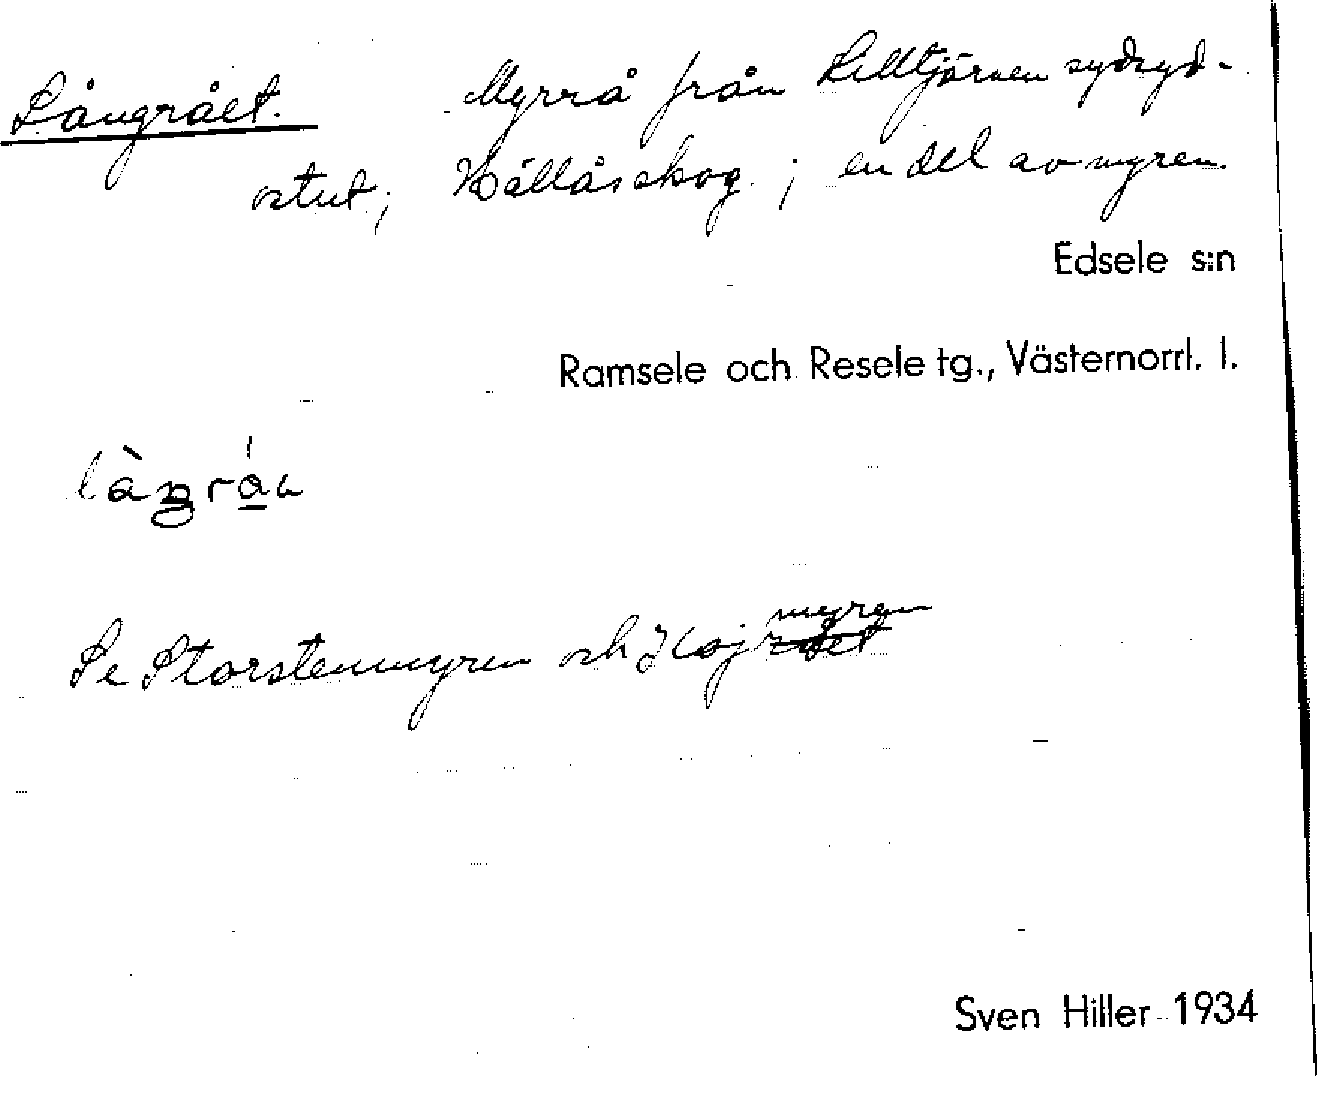 Långrået. Myrrå från Lilltjärnen sydsyd-
ostut; Hällåskog; en del av myren
Edsele s:n
Ramsele och Resele tg., Västernorrl. l.
Se Storstenmyren och myren
Sven Hiller 1934